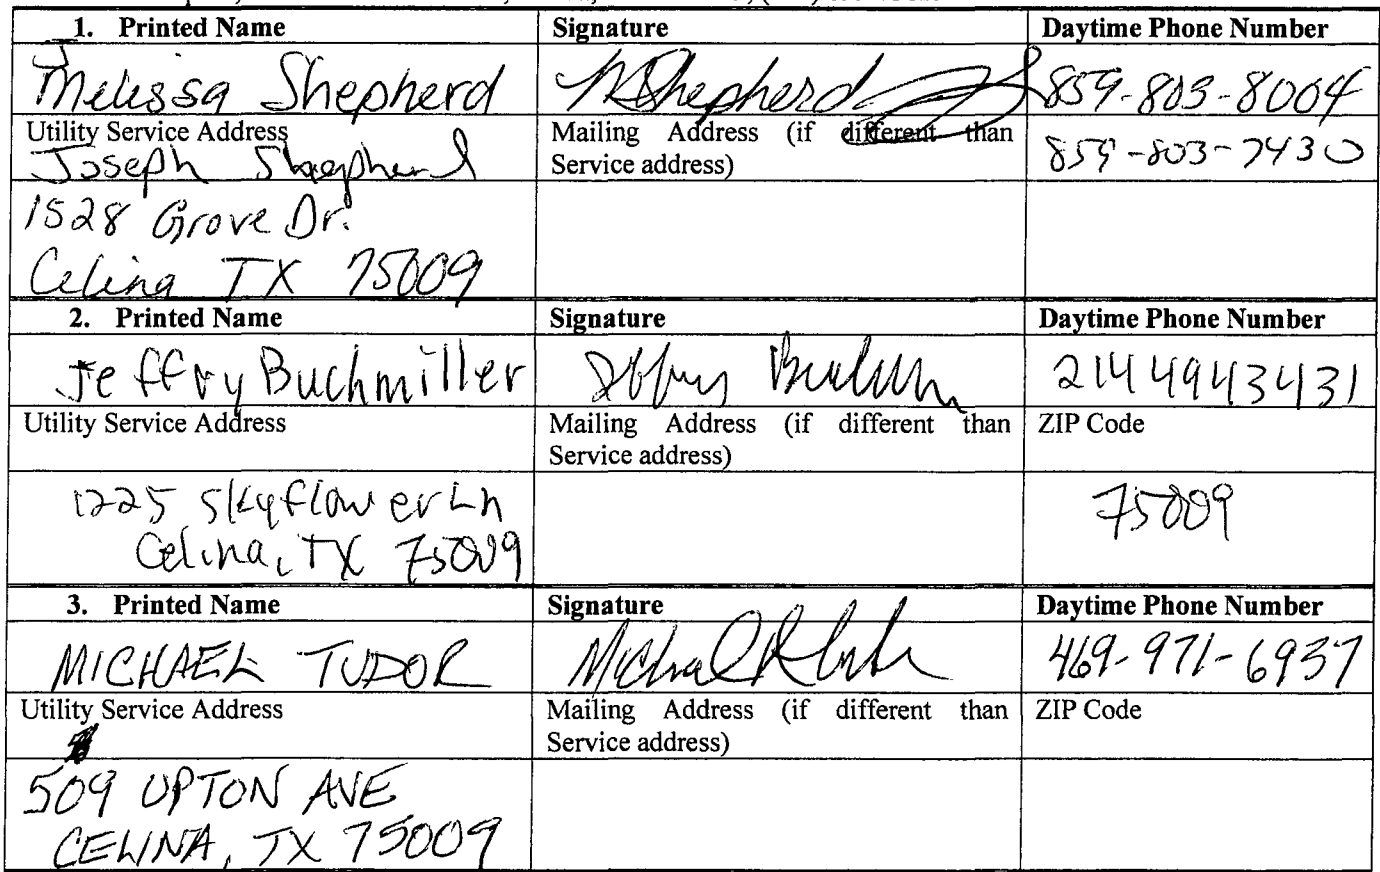 1. Printed Name Signature Daytime Phone Number
Melissa Shepherd MShepherd 859-803-8004
Utility Service Address Mailing Address (if different than
Service address) 859-803-7430
Joseph Shepherd
1528 Grove Dr.
Celina TX 75009
2. Printed Name Signature Daytime Phone Number
Jeffry Buchmiller 2144943431
Utility Service Address Mailing Address (if different than ZIP Code
Service address)
1225 Skyflower Ln 75009
Celina, TX 75009
3. Printed Name Signature Daytime Phone Number
MICHAEL TUDOR Michael 469-971-6937
Utility Service Address Mailing Address (if different than ZIP Code
Service address)
509 UPTON AVE
CELINA, TX 75009